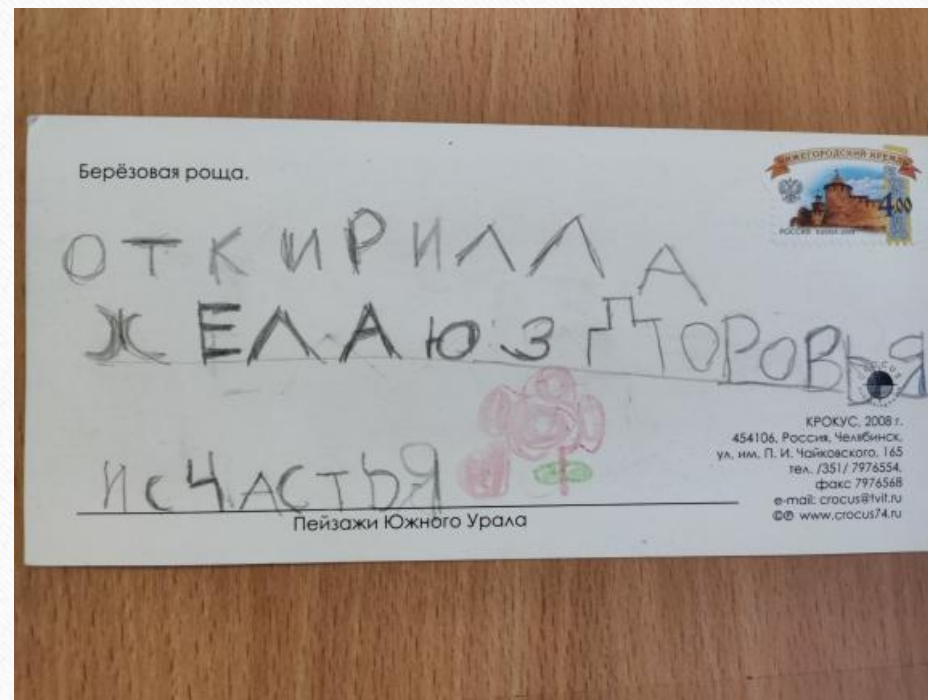 Берёзовая роща.
НИЖЕГОРОДСКИЙ КРЕМЛЬ
4,00
РОССИЯ
ОТ КИРИЛЛА
ЖЕЛАЮ ЗДОРОВЬЯ
И СЧАСТЬЯ
КРОКУС, 2008 г.
454106, Россия, Челябинск,
ул. им. П. И. Чайковского, 165
тел. /351/ 7976554,
факс 7976568
e-mail: crocus@tvit.ru
©℗ www.crocus74.ru
Пейзажи Южного Урала